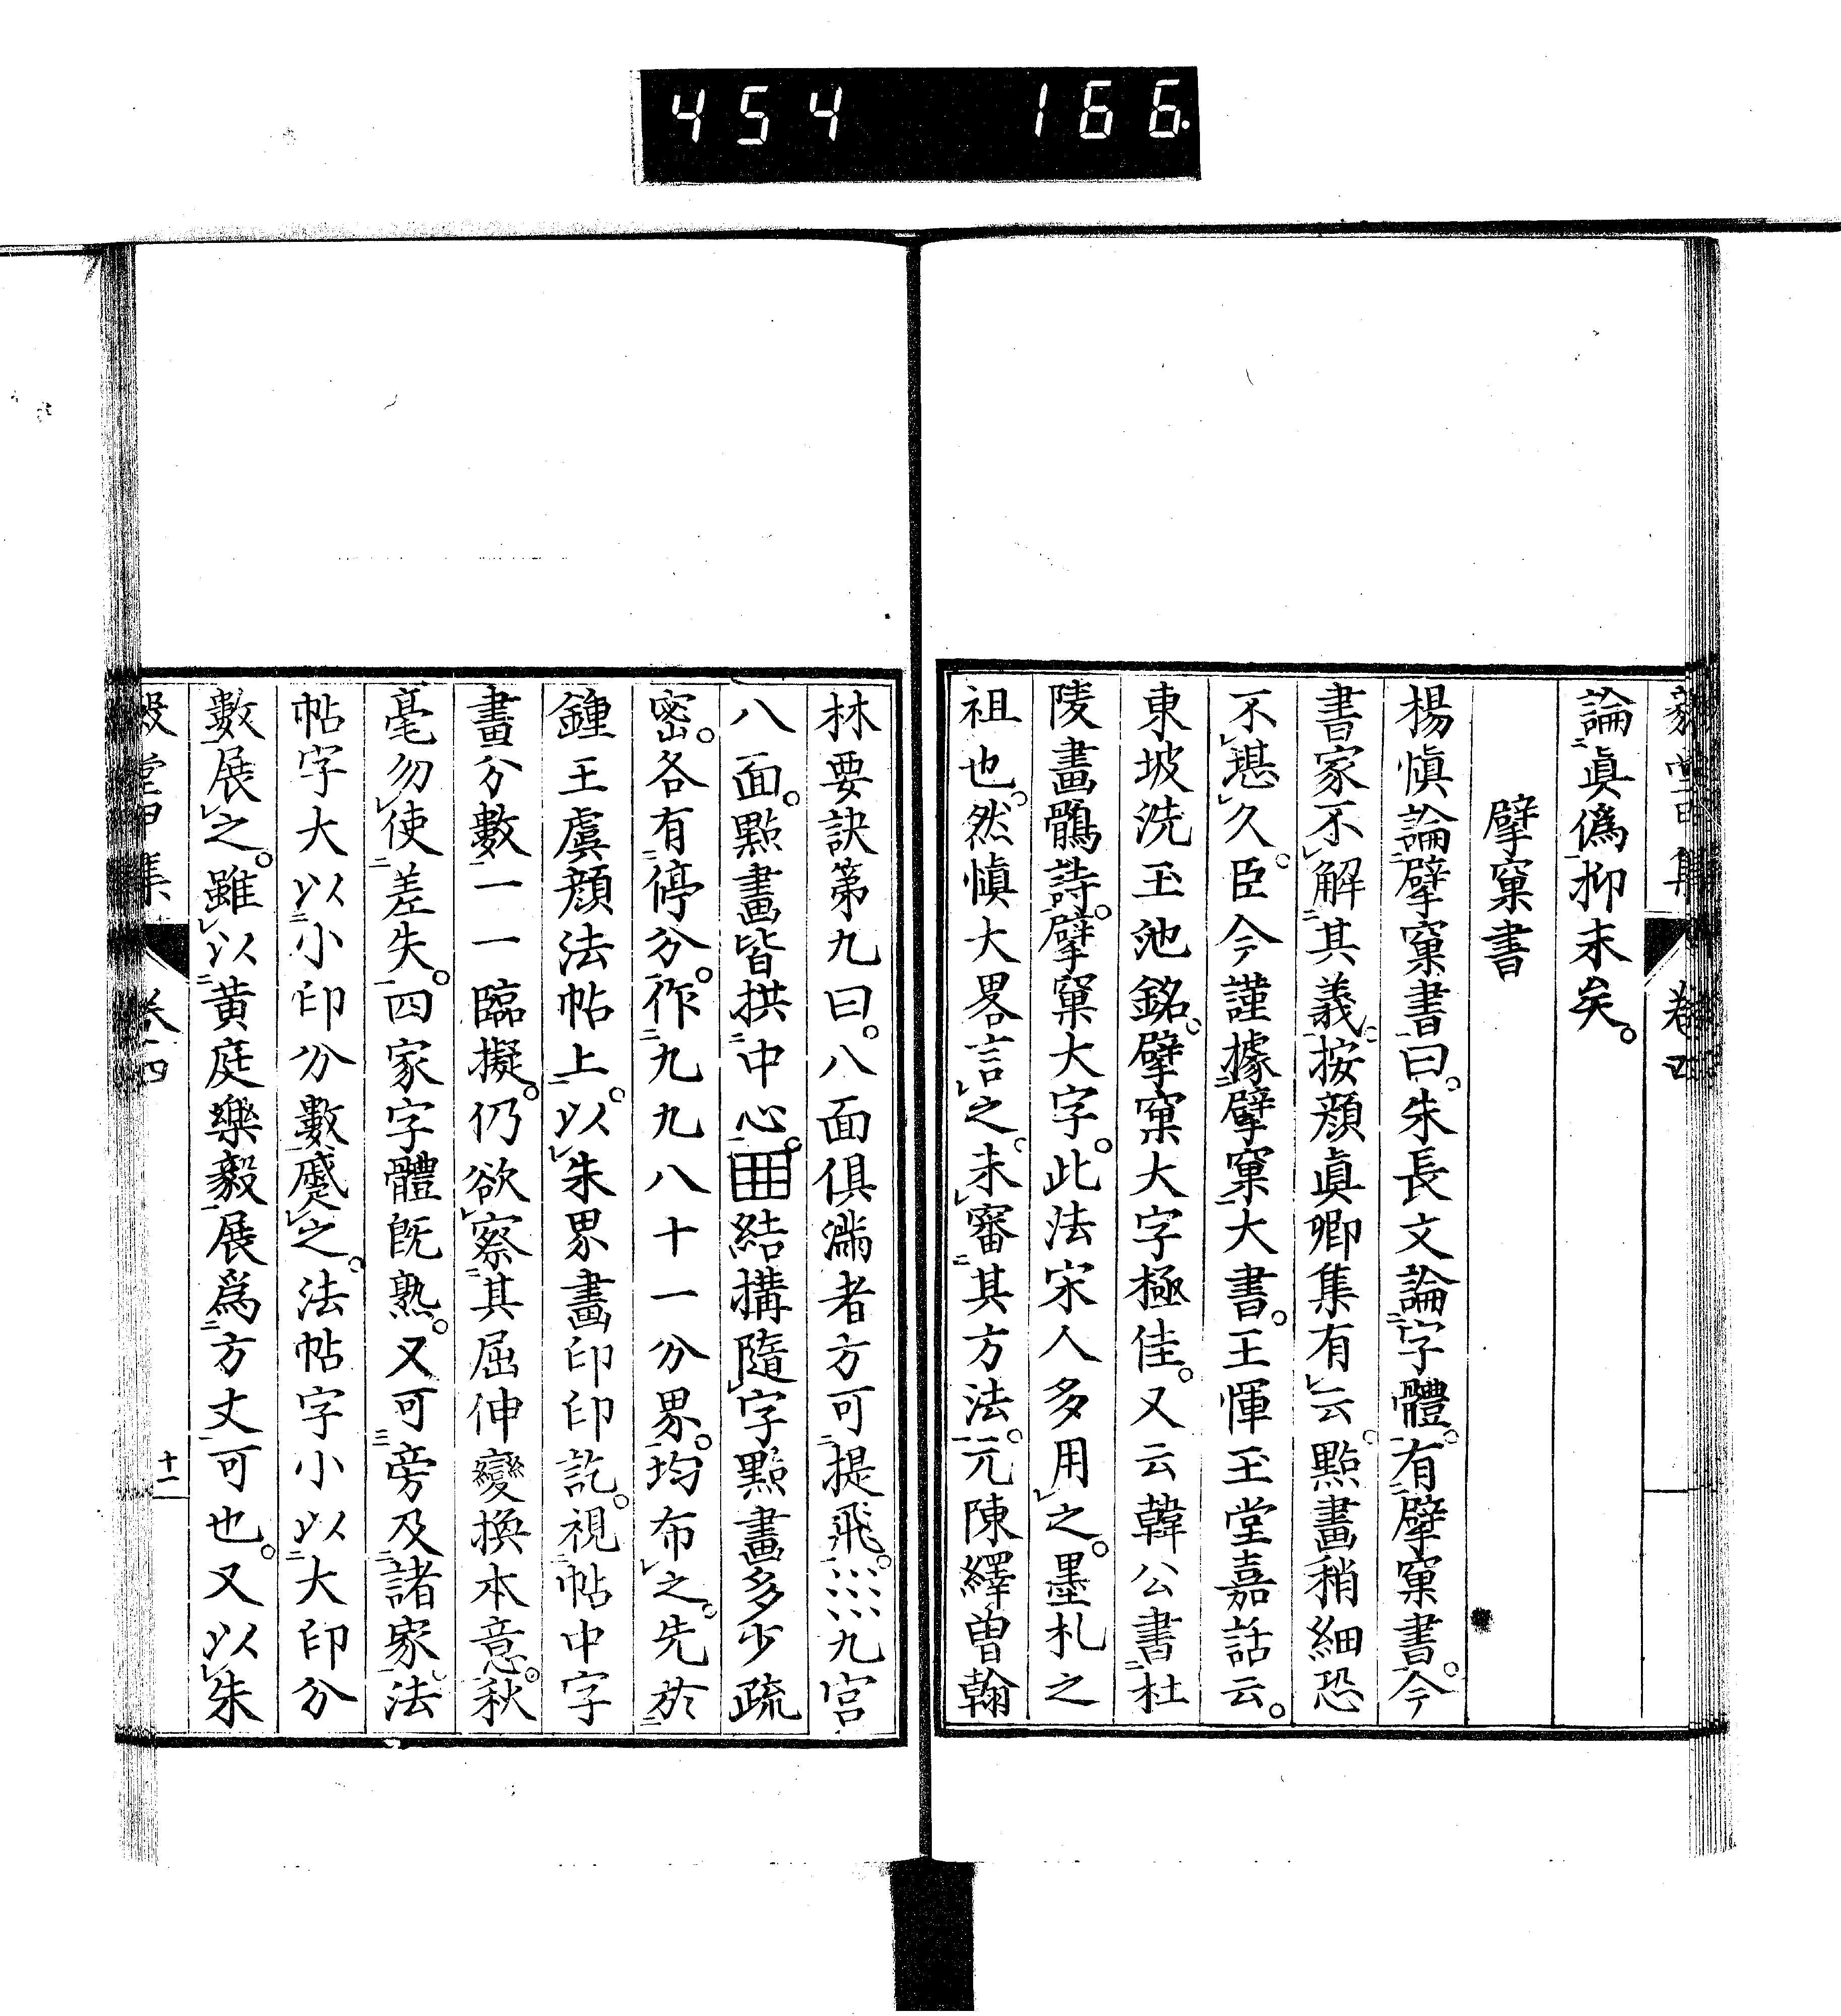 454 166.
論眞僞抑末矣。
擘窠書
楊愼論擘窠書曰。朱長文論字體。有擘窠書。今
書家不解其義。按顏眞卿集有云。點畫稍細恐
不堪久。臣今謹據擘窠大書。王惲玉堂嘉話云。
東坡洗玉池銘。擘窠大字極佳。又云韓公書杜
陵畫鶻詩。擘窠大字。此法宋人多用之。墨札之
祖也。然愼大畧言之。未審其方法。元陳繹曾翰
林要訣第九曰。八面俱滿者方可提飛。九宮
八面。點畫皆拱中心。結構隨字點畫多少疏
密。各有停分。作九九八十一分界。均布之。先於
鍾王虞顏法帖上。以朱界畫印印訖。視帖中字
畫分數一一臨擬。仍欲察其屈伸變換本意。秋
毫勿使差失。四家字體旣熟。又可旁及諸家法
帖字大以小印分數蹙之。法帖字小以大印分
數展之。雖以黃庭樂毅展爲方丈可也。又以朱
卷四
十二